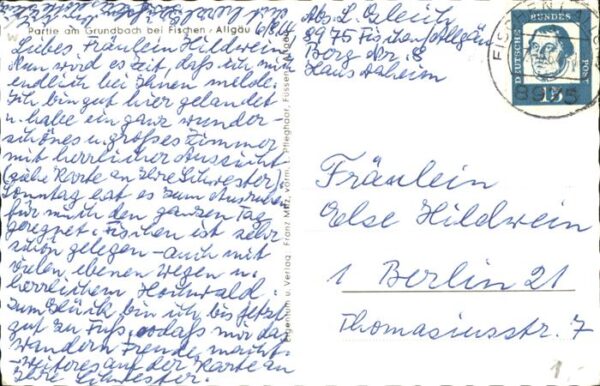 Partie am Grundbach bei Fischen/Allgäu
6/8.
Liebes Fräulein Hildwein
Nun wird es Zeit, daß ich mich
endlich bei Ihnen melde.
Ich bin gut hier gelandet
u. habe ein ganz wunder-
schönes u. großes Zimmer
mit herrlicher Aussicht
(siehe Karte an Ihre Schwester).
Sonntag hat es zum Ausruhen
für mich den ganzen Tag
geregnet. Fischen ist sehr
schön gelegen - auch mit
vielen, ebenen Wegen u.
herrlichem Hochwald.
Zum Glück bin ich bis jetzt
gut zu Fuß, sodass mir das
Wandern Freude macht.
- Weiteres auf der Karte an
Ihre Schwester.
Eigentum u. Verlag Franz Milz, vorm. L. Pfleghaar, Füssen/Allgäu
Abs. L. Gleitz
8975 Fischen/Allgäu
Berg Nr. 8
Haus Daheim
DEUTSCHE BUNDESPOST
15
FISCHEN
8975
Fräulein
Else Hildwein
1 Berlin 21
Thomasiusstr. 7
1.-